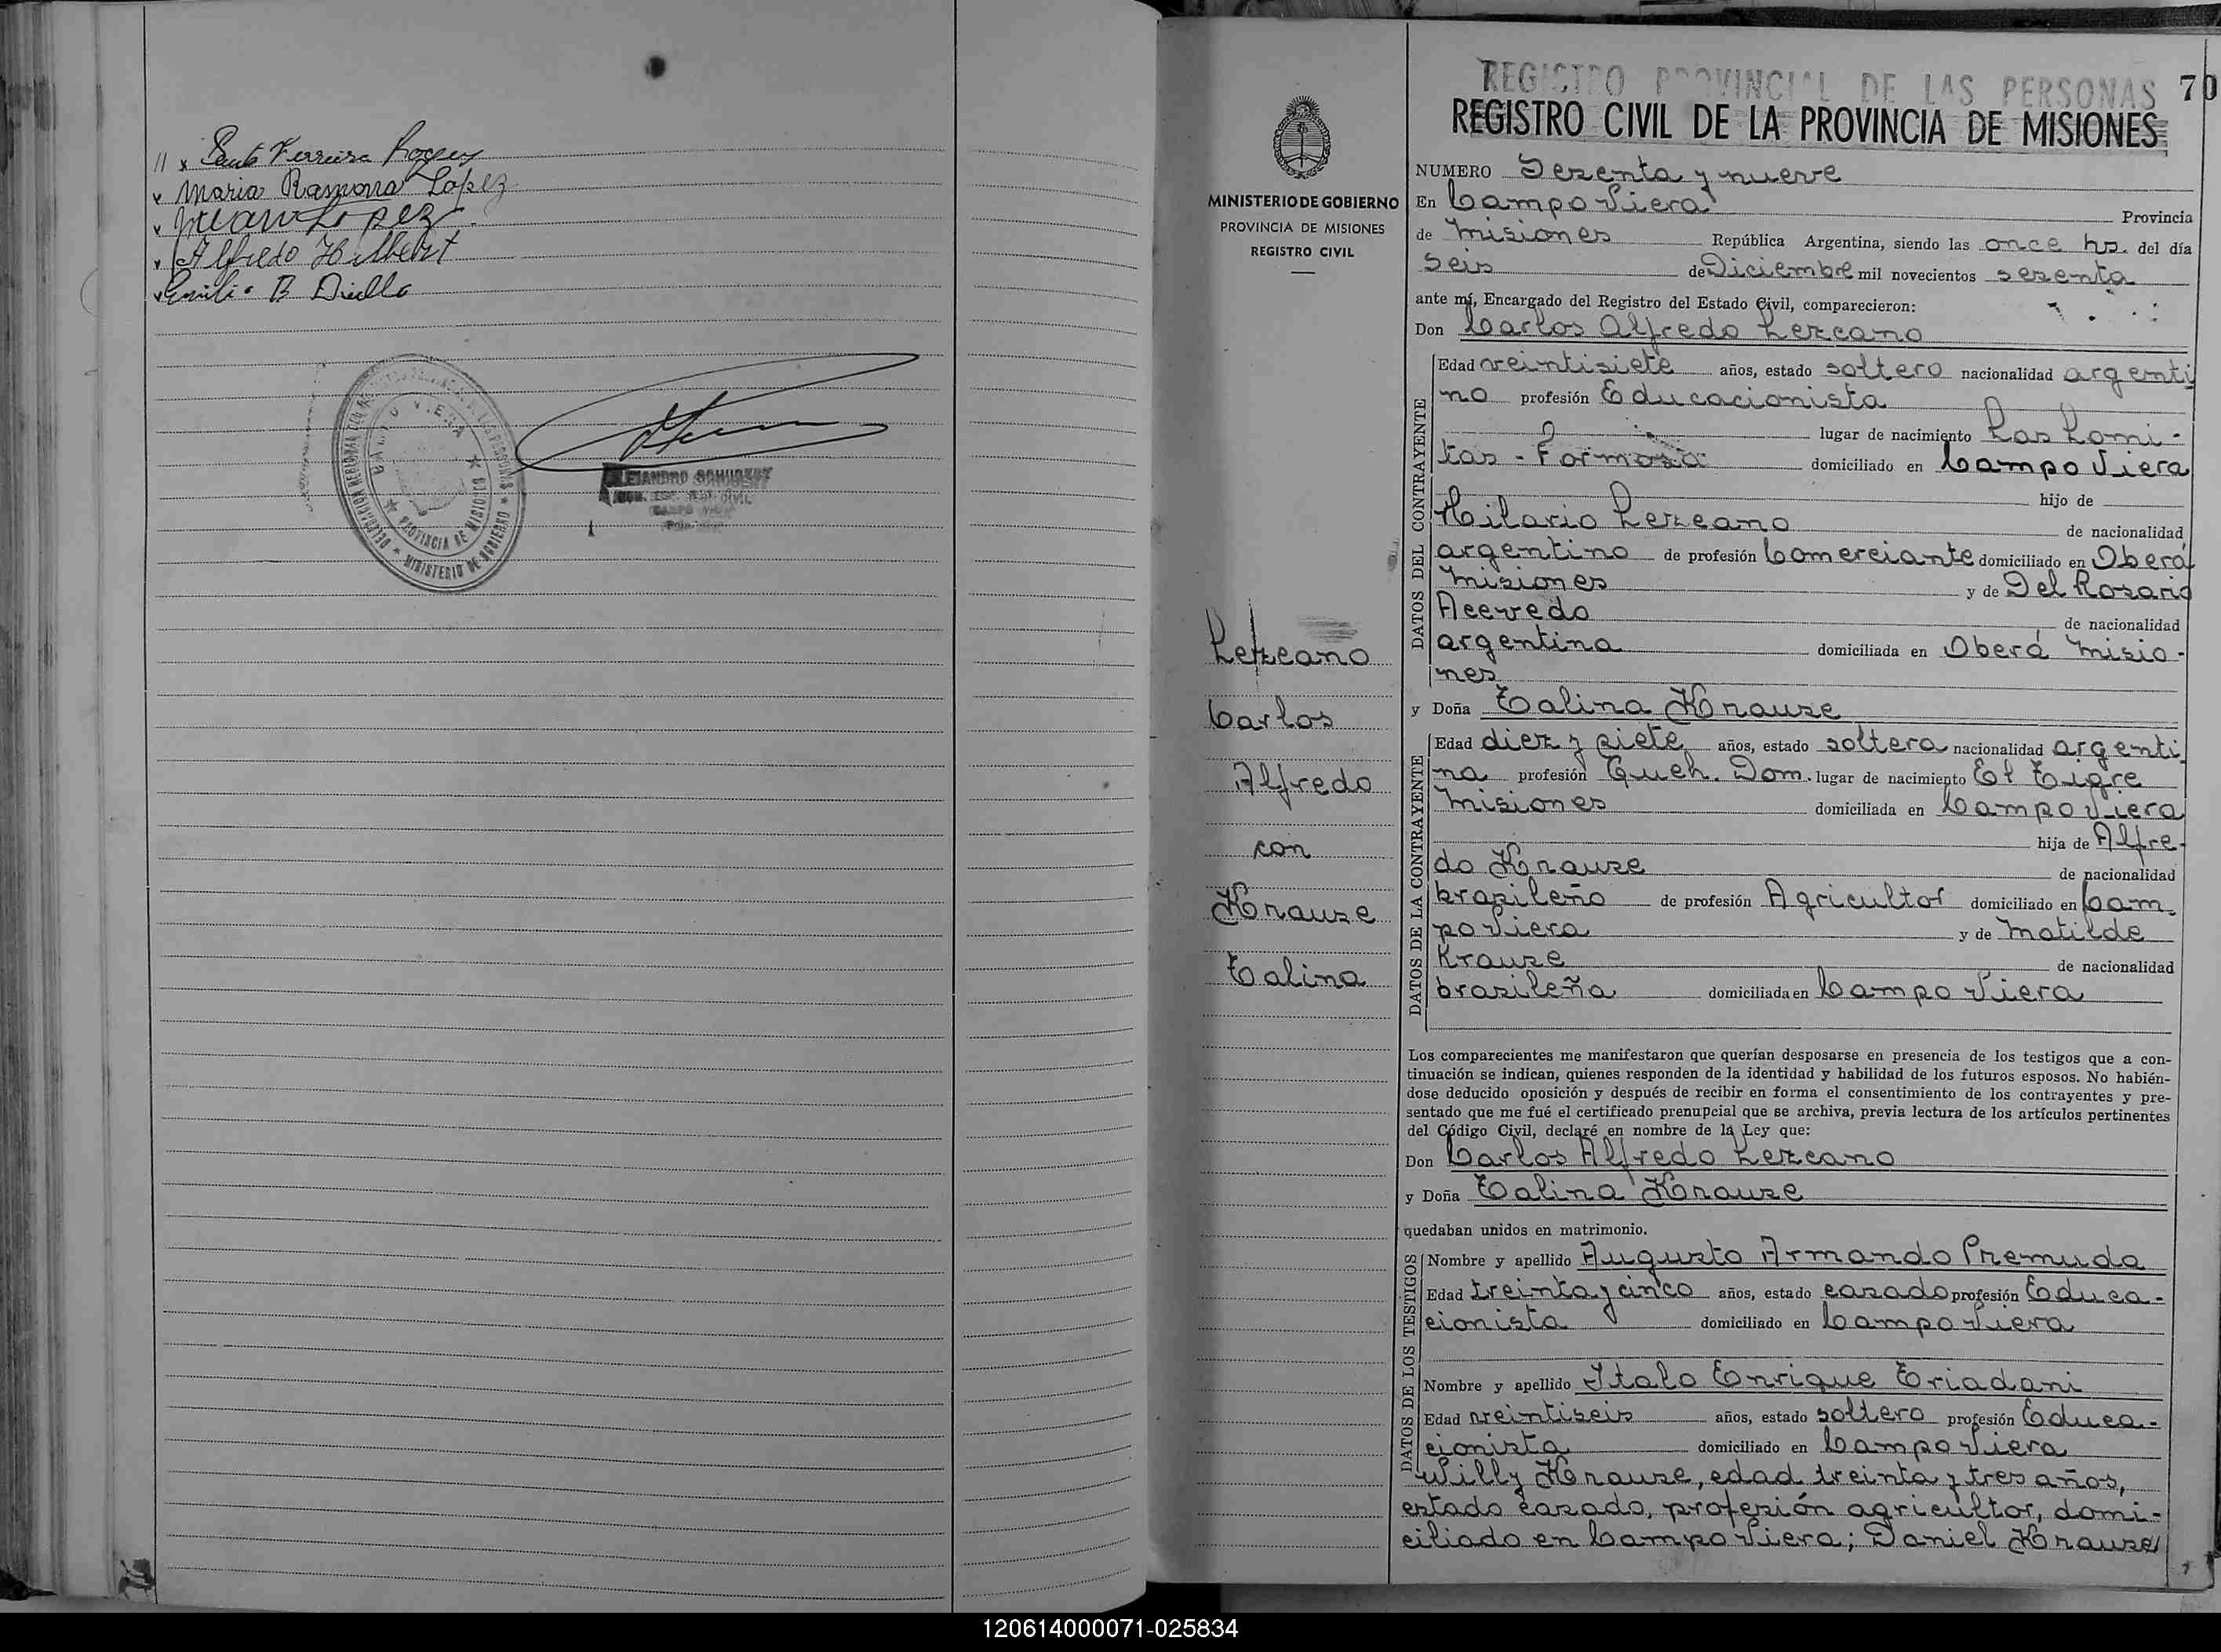 // x Santo Ferreira
x Maria Ramona López
x Juan López
x Alfredo Hilbert
x Emilio B Diello
CAMPO VIERA
PROVINCIA DE MISIONES
MINISTERIO DE GOBIERNO
ALEJANDRO SCHUBERT
REGISTRO PROVINCIAL DE LAS PERSONAS 70
REGISTRO CIVIL DE LA PROVINCIA DE MISIONES
MINISTERIO DE GOBIERNO
PROVINCIA DE MISIONES
REGISTRO CIVIL
Lezcano
Carlos
Alfredo
con
Krauze
Talina
NUMERO Sezenta y nueve
En Campo Viera Provincia
de Misiones República Argentina, siendo las once hs. del día
Seis de Diciembre mil novecientos sezenta
ante mí, Encargado del Registro del Estado Civil, comparecieron:
Don Carlos Alfredo Lezcano
DATOS DEL CONTRAYENTE
Edad veintisiete años, estado soltero nacionalidad argenti
no profesión Educacionista
lugar de nacimiento Las Lomi-
tas - Formosa domiciliado en Campo Viera
hijo de
Hilario Lezcano de nacionalidad
argentino de profesión Comerciante domiciliado en Oberá
Misiones y de Del Rosario
Acevedo de nacionalidad
argentina domiciliada en Oberá Misio-
nes
y Doña Talina Krauze
DATOS DE LA CONTRAYENTE
Edad diez y siete años, estado soltera nacionalidad argenti
na profesión Queh. Dom. lugar de nacimiento El Tigre
Misiones domiciliada en Campo Viera
hija de Alfre-
do Krauze de nacionalidad
brasileño de profesión Agricultor domiciliado en Cam-
po Viera y de Matilde
Krauze de nacionalidad
brasileña domiciliada en Campo Viera
Los comparecientes me manifestaron que querían desposarse en presencia de los testigos que a con-
tinuación se indican, quienes responden de la identidad y habilidad de los futuros esposos. No habién-
dose deducido oposición y después de recibir en forma el consentimiento de los contrayentes y pre-
sentado que me fué el certificado prenupcial que se archiva, previa lectura de los artículos pertinentes
del Código Civil, declaré en nombre de la Ley que:
Don Carlos Alfredo Lezcano
y Doña Talina Krauze
quedaban unidos en matrimonio.
DATOS DE LOS TESTIGOS
Nombre y apellido Augusto Armando Premuda
Edad treinta y cinco años, estado casado profesión Educa-
cionista domiciliado en Campo Viera
Nombre y apellido Italo Enrique Triadani
Edad veintiseis años, estado soltero profesión Educa-
cionista domiciliado en Campo Viera
Willy Krauze, edad treinta y tres años,
estado casado, profesión agricultor, domi-
ciliado en Campo Viera; Daniel Krauze
120614000071-025834